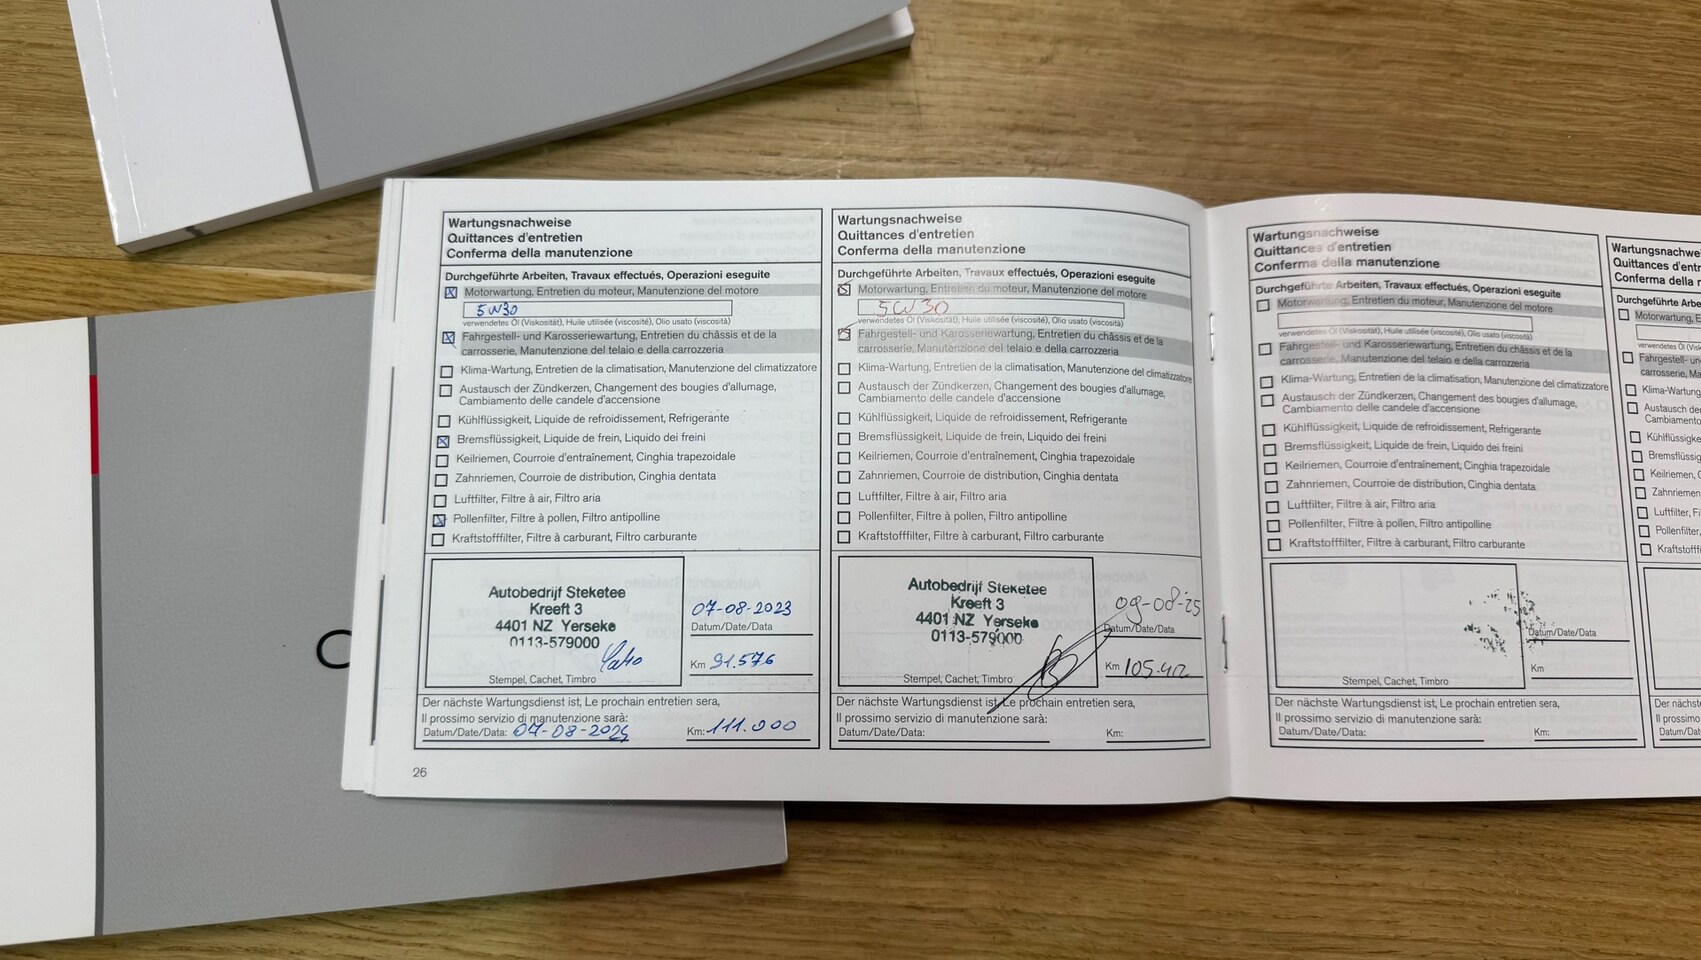 Wartungsnachweise
Quittances d'entretien
Conferma della manutenzione
Durchgeführte Arbeiten, Travaux effectués, Operazioni eseguite
Motorwartung, Entretien du moteur, Manutenzione del motore
5W30
verwendetes Öl (Viskosität), Huile utilisée (viscosité), Olio usato (viscosità)
Fahrgestell- und Karosseriewartung, Entretien du châssis et de la
carrosserie, Manutenzione del telaio e della carrozzeria
Klima-Wartung, Entretien de la climatisation, Manutenzione del climatizzatore
Austausch der Zündkerzen, Changement des bougies d'allumage,
Cambiamento delle candele d'accensione
Kühlflüssigkeit, Liquide de refroidissement, Refrigerante
Bremsflüssigkeit, Liquide de frein, Liquido dei freini
Keilriemen, Courroie d'entraînement, Cinghia trapezoidale
Zahnriemen, Courroie de distribution, Cinghia dentata
Luftfilter, Filtre à air, Filtro aria
Pollenfilter, Filtre à pollen, Filtro antipolline
Kraftstofffilter, Filtre à carburant, Filtro carburante
Autobedrijf Steketee
Kreeft 3
4401 NZ Yerseke
0113-579000
Stempel, Cachet, Timbro
07-08-2023
Datum/Date/Data
Km 91.576
Der nächste Wartungsdienst ist, Le prochain entretien sera,
Il prossimo servizio di manutenzione sarà:
Datum/Date/Data: 07-08-2024
Km: 111.000
26
Wartungsnachweise
Quittances d'entretien
Conferma della manutenzione
Durchgeführte Arbeiten, Travaux effectués, Operazioni eseguite
Motorwartung, Entretien du moteur, Manutenzione del motore
5W30
verwendetes Öl (Viskosität), Huile utilisée (viscosité), Olio usato (viscosità)
Fahrgestell- und Karosseriewartung, Entretien du châssis et de la
carrosserie, Manutenzione del telaio e della carrozzeria
Klima-Wartung, Entretien de la climatisation, Manutenzione del climatizzatore
Austausch der Zündkerzen, Changement des bougies d'allumage,
Cambiamento delle candele d'accensione
Kühlflüssigkeit, Liquide de refroidissement, Refrigerante
Bremsflüssigkeit, Liquide de frein, Liquido dei freini
Keilriemen, Courroie d'entraînement, Cinghia trapezoidale
Zahnriemen, Courroie de distribution, Cinghia dentata
Luftfilter, Filtre à air, Filtro aria
Pollenfilter, Filtre à pollen, Filtro antipolline
Kraftstofffilter, Filtre à carburant, Filtro carburante
Autobedrijf Steketee
Kreeft 3
4401 NZ Yerseke
0113-579000
Stempel, Cachet, Timbro
09-08-25
Datum/Date/Data
Km 105.412
Der nächste Wartungsdienst ist, Le prochain entretien sera,
Il prossimo servizio di manutenzione sarà:
Datum/Date/Data:
Km:
Wartungsnachweise
Quittances d'entretien
Conferma della manutenzione
Durchgeführte Arbeiten, Travaux effectués, Operazioni eseguite
Motorwartung, Entretien du moteur, Manutenzione del motore
verwendetes Öl (Viskosität), Huile utilisée (viscosité), Olio usato (viscosità)
Fahrgestell- und Karosseriewartung, Entretien du châssis et de la
carrosserie, Manutenzione del telaio e della carrozzeria
Klima-Wartung, Entretien de la climatisation, Manutenzione del climatizzatore
Austausch der Zündkerzen, Changement des bougies d'allumage,
Cambiamento delle candele d'accensione
Kühlflüssigkeit, Liquide de refroidissement, Refrigerante
Bremsflüssigkeit, Liquide de frein, Liquido dei freini
Keilriemen, Courroie d'entraînement, Cinghia trapezoidale
Zahnriemen, Courroie de distribution, Cinghia dentata
Luftfilter, Filtre à air, Filtro aria
Pollenfilter, Filtre à pollen, Filtro antipolline
Kraftstofffilter, Filtre à carburant, Filtro carburante
Stempel, Cachet, Timbro
Datum/Date/Data
Km
Der nächste Wartungsdienst ist, Le prochain entretien sera,
Il prossimo servizio di manutenzione sarà:
Datum/Date/Data:
Km:
Wartungsnachwe
Quittances d'ent
Conferma della
Durchgeführte Arb
Motorwartung, E
verwendetes Öl
Fahrgestell- un
carrosserie, Ma
Klima-Wartung
Austausch der
Cambiamento
Kühlflüssigke
Bremsflüssig
Keilriemen, C
Zahnriemen,
Luftfilter, Fi
Pollenfilter,
Kraftstofffi
Der nächste
Il prossimo
Datum/Date